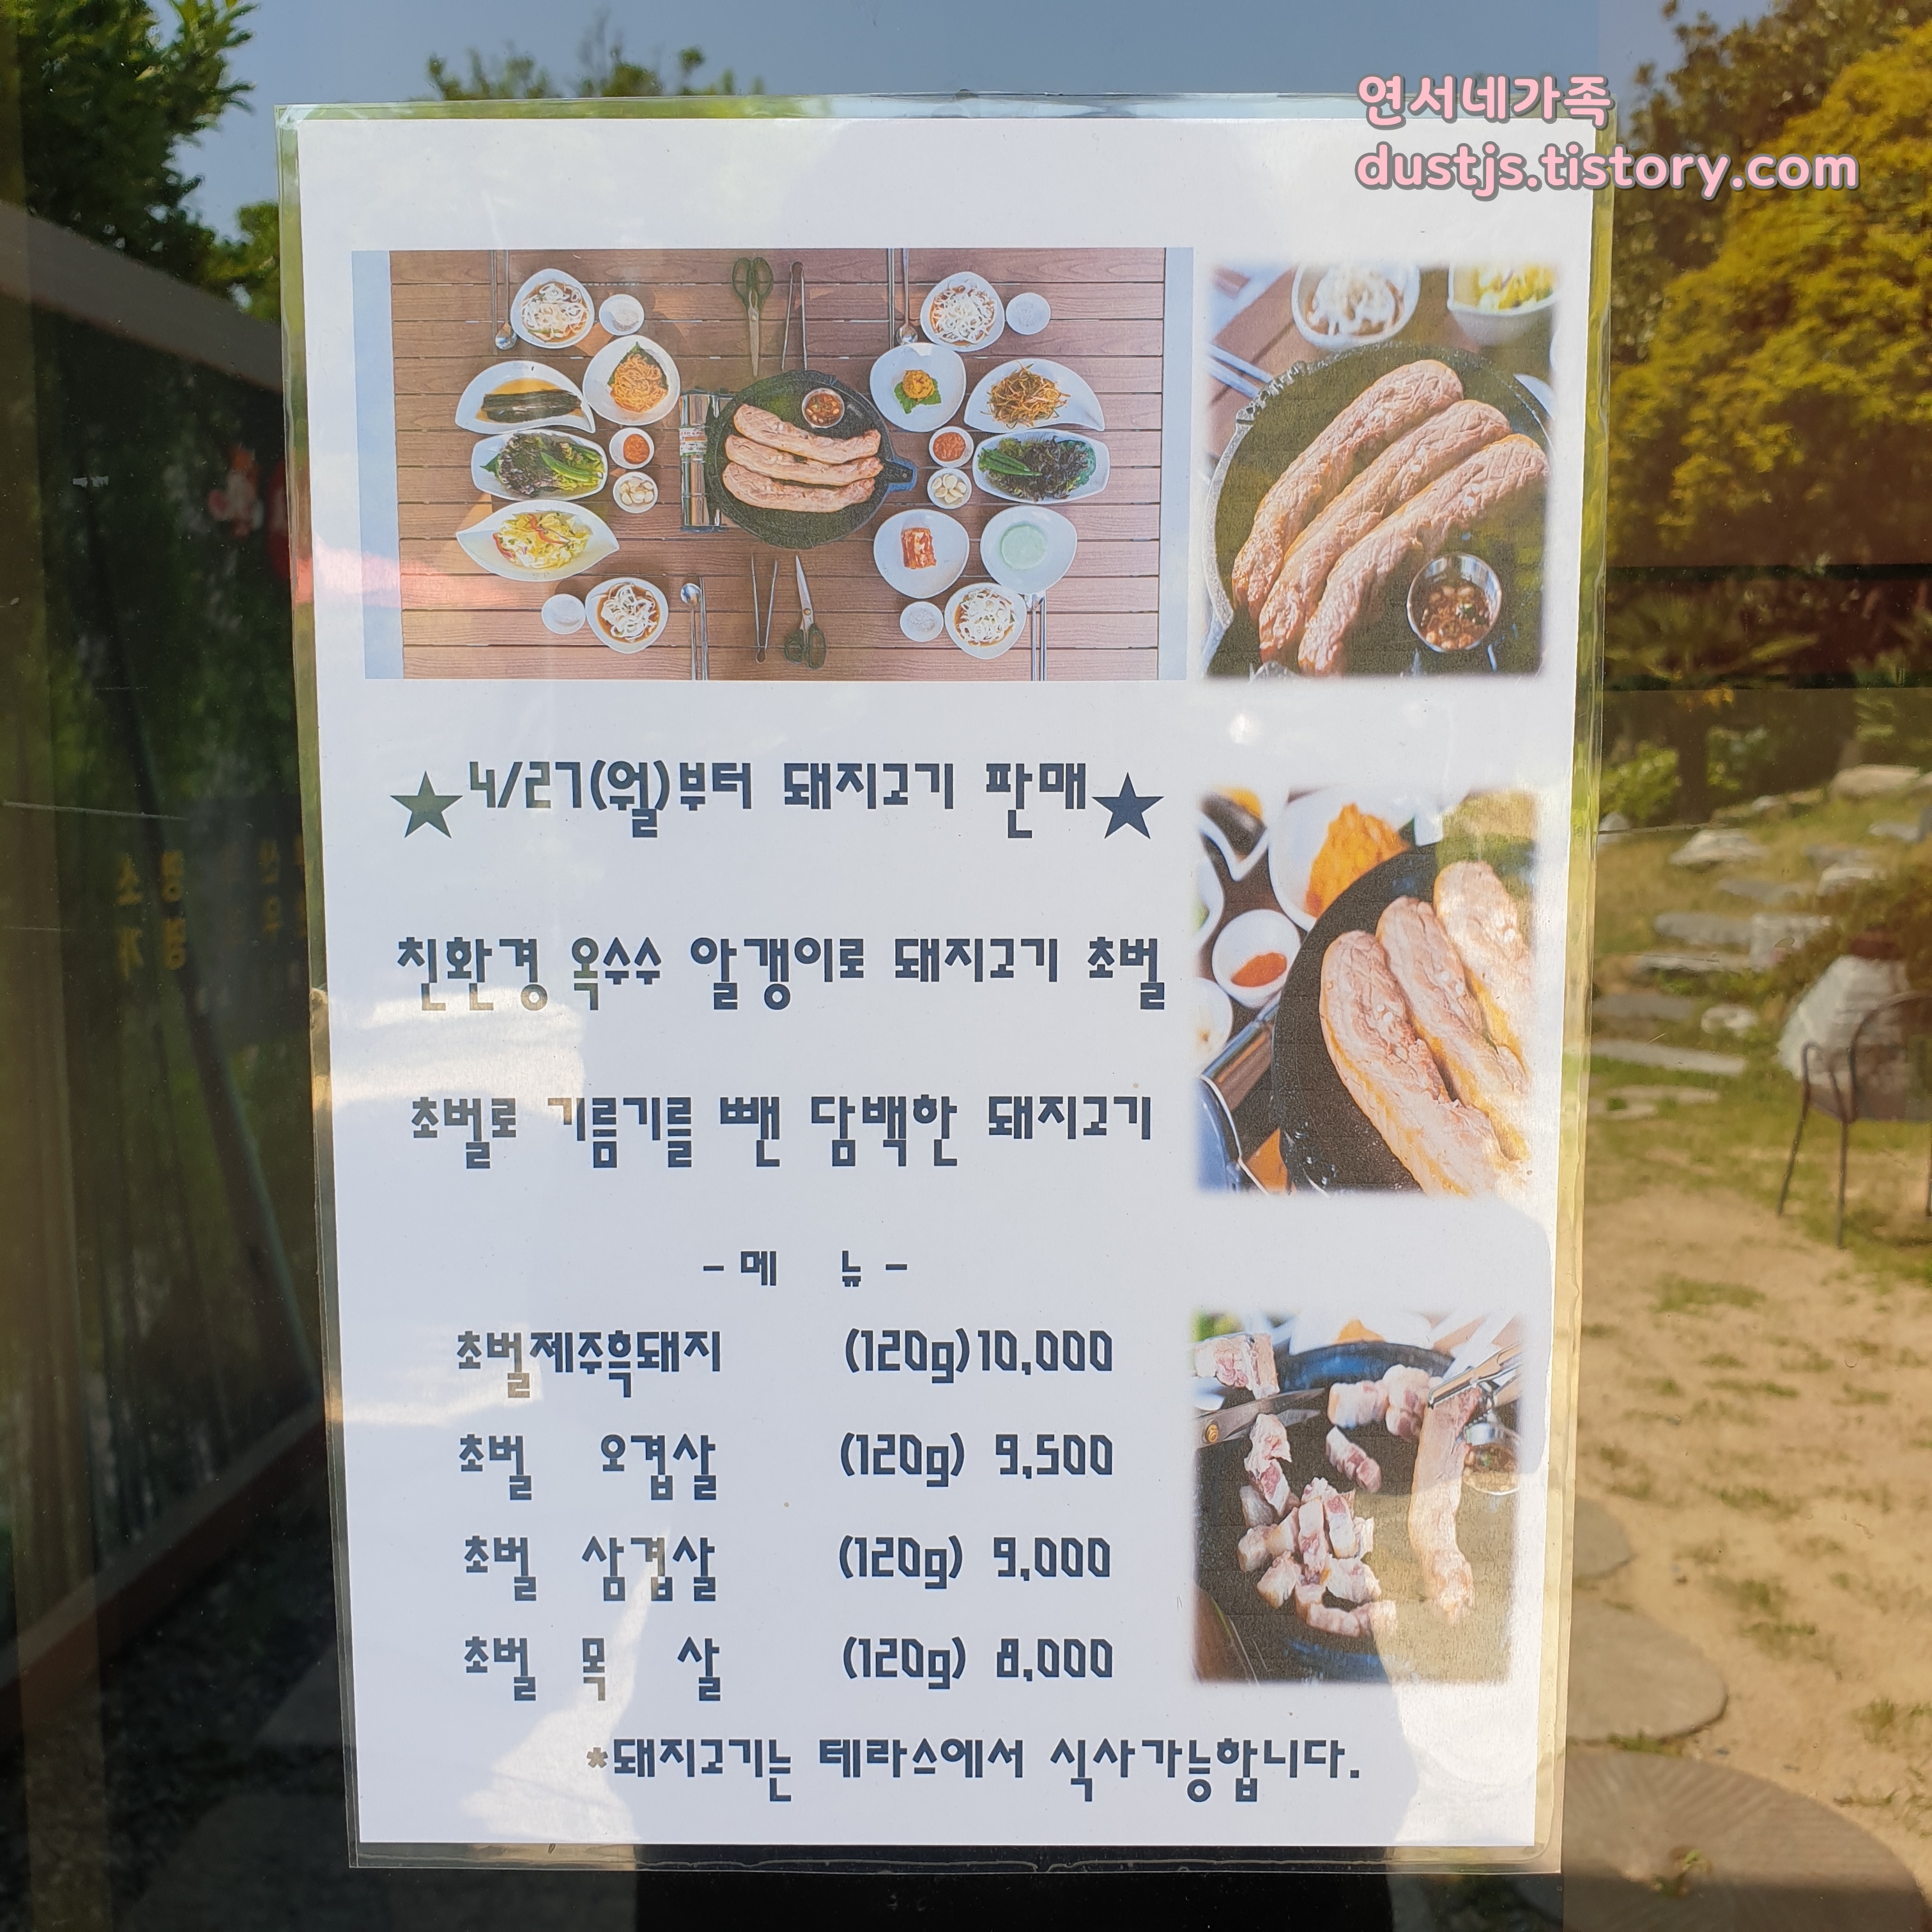 연서네가족
dustjs.tistory.com
★4/27(월)부터 돼지고기 판매★
친환경 옥수수 알갱이로 돼지고기 초벌
초벌로 기름기를 뺀 담백한 돼지고기
- 메 뉴 -
초벌제주흑돼지 (120g)10,000
초벌 오겹살 (120g) 9,500
초벌 삼겹살 (120g) 9,000
초벌 목 살 (120g) 8,000
*돼지고기는 테라스에서 식사가능합니다.